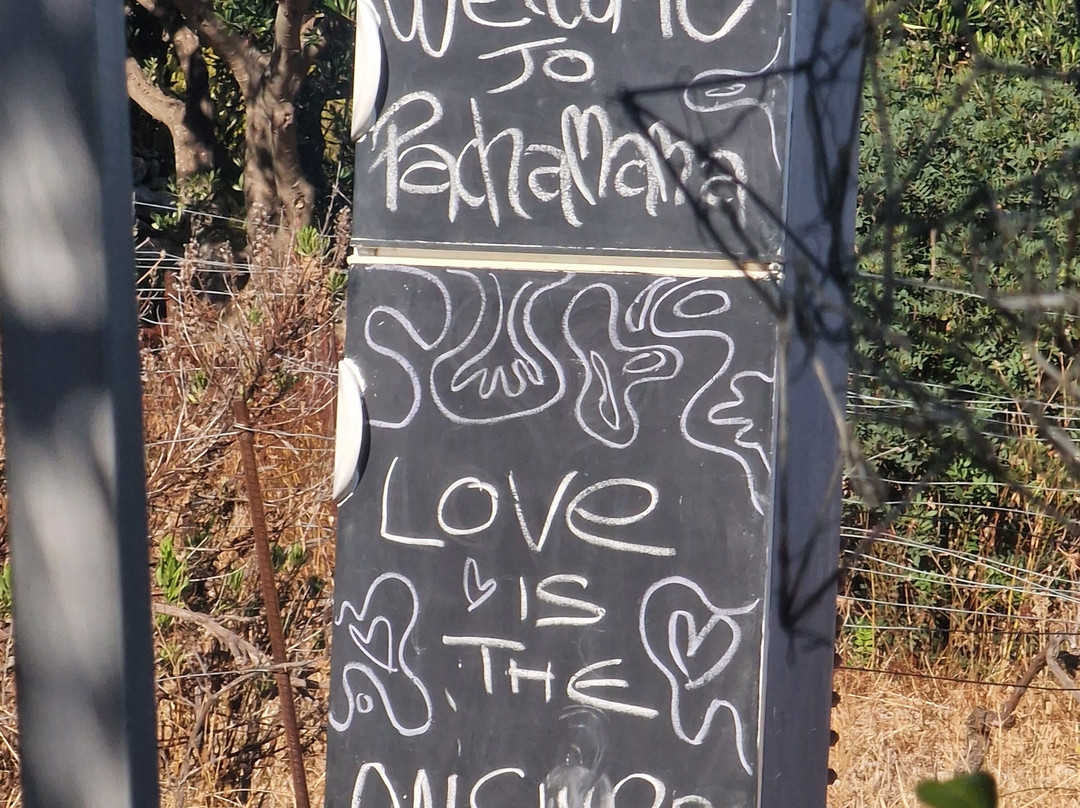 Welcome
To
PachaMaMa
LOVe
IS
THE
ANSWeR